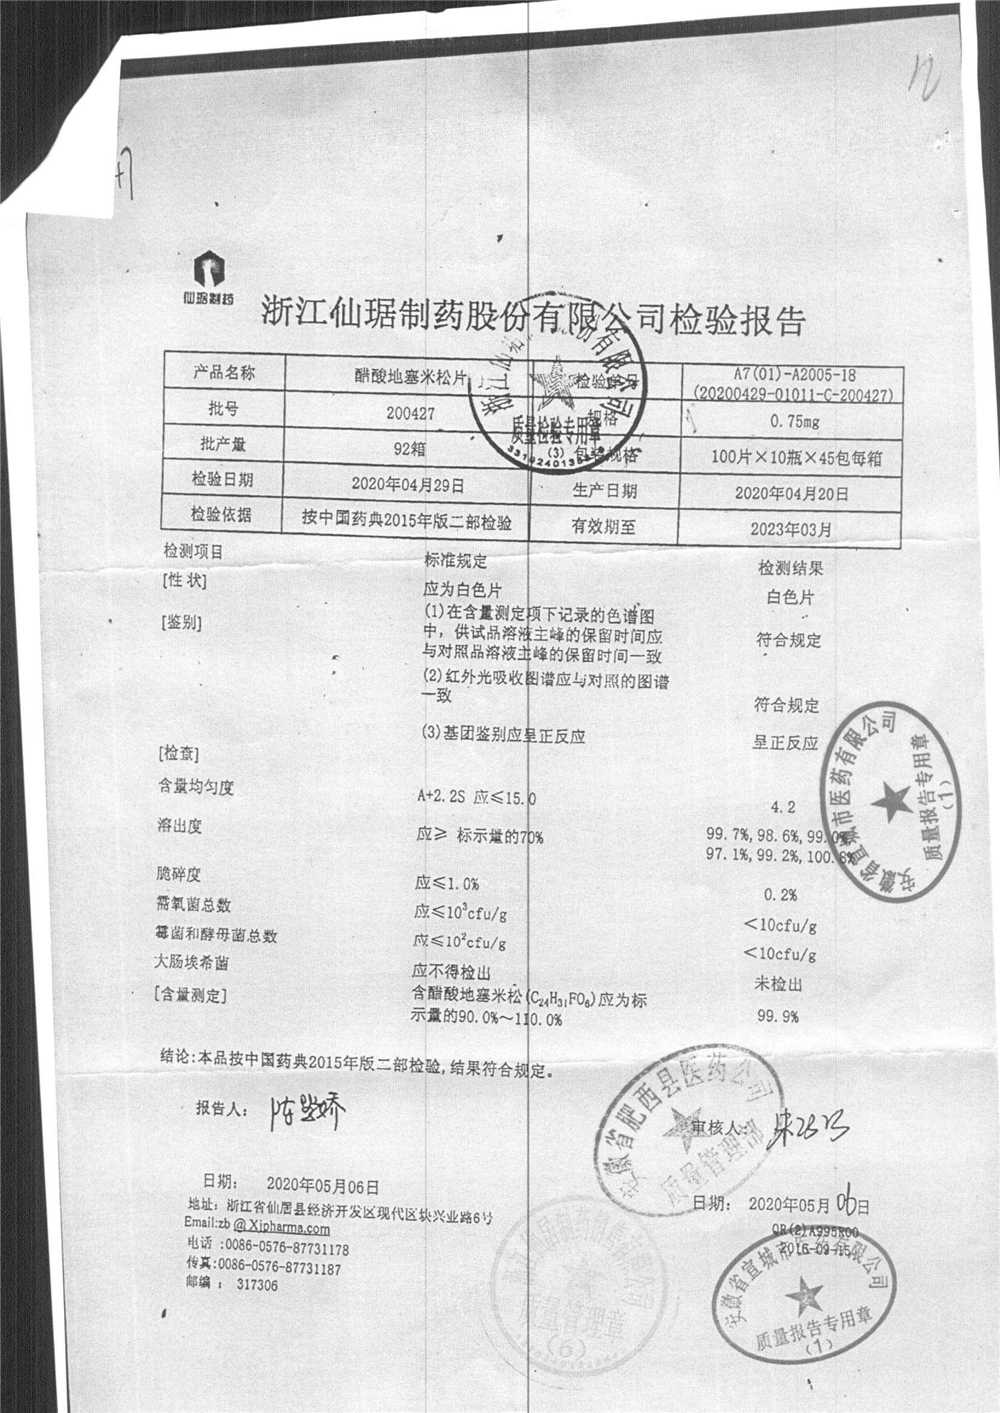 仙琚制药
浙江仙琚制药股份有限公司检验报告
产品名称 醋酸地塞米松片 检验 A7(01)-A2005-18
(20200429-01011-C-200427)
批号 200427 规格 0.75mg
批产量 92箱 包装规格 100片×10瓶×45包每箱
检验日期 2020年04月29日 生产日期 2020年04月20日
检验依据 按中国药典2015年版二部检验 有效期至 2023年03月
质量检验专用章
(3)
检测项目 标准规定 检测结果
[性状] 应为白色片 白色片
[鉴别] (1)在含量测定项下记录的色谱图
中，供试品溶液主峰的保留时间应 符合规定
与对照品溶液主峰的保留时间一致
(2)红外光吸收图谱应与对照的图谱
一致 符合规定
(3)基团鉴别应呈正反应 呈正反应
[检查]
含量均匀度 A+2.2S 应≤15.0 4.2
溶出度 应≥ 标示量的70% 99.7%,98.6%,99.0%
97.1%,99.2%,100.
脆碎度 应≤1.0% 0.2%
需氧菌总数 应≤10³cfu/g <10cfu/g
霉菌和酵母菌总数 应≤10²cfu/g <10cfu/g
大肠埃希菌 应不得检出 未检出
[含量测定] 含醋酸地塞米松(C₂₄H₃₁FO₆)应为标
示量的90.0%～110.0% 99.9%
安徽省宣城市医药有限公司
质量报告专用章
(1)
结论:本品按中国药典2015年版二部检验,结果符合规定。
报告人: 审核人:
安徽省肥西县医药公司
质量管理部
日期: 2020年05月06日 日期: 2020年05月06日
地址: 浙江省仙居县经济开发区现代区块兴业路6号
Email:zb@Xjpharma.com
电话:0086-0576-87731178
传真:0086-0576-87731187
邮编: 317306
QR(2)A995R00
2016-09-15
质量管理章
(6)
安徽省宣城市医药有限公司
质量报告专用章
(1)